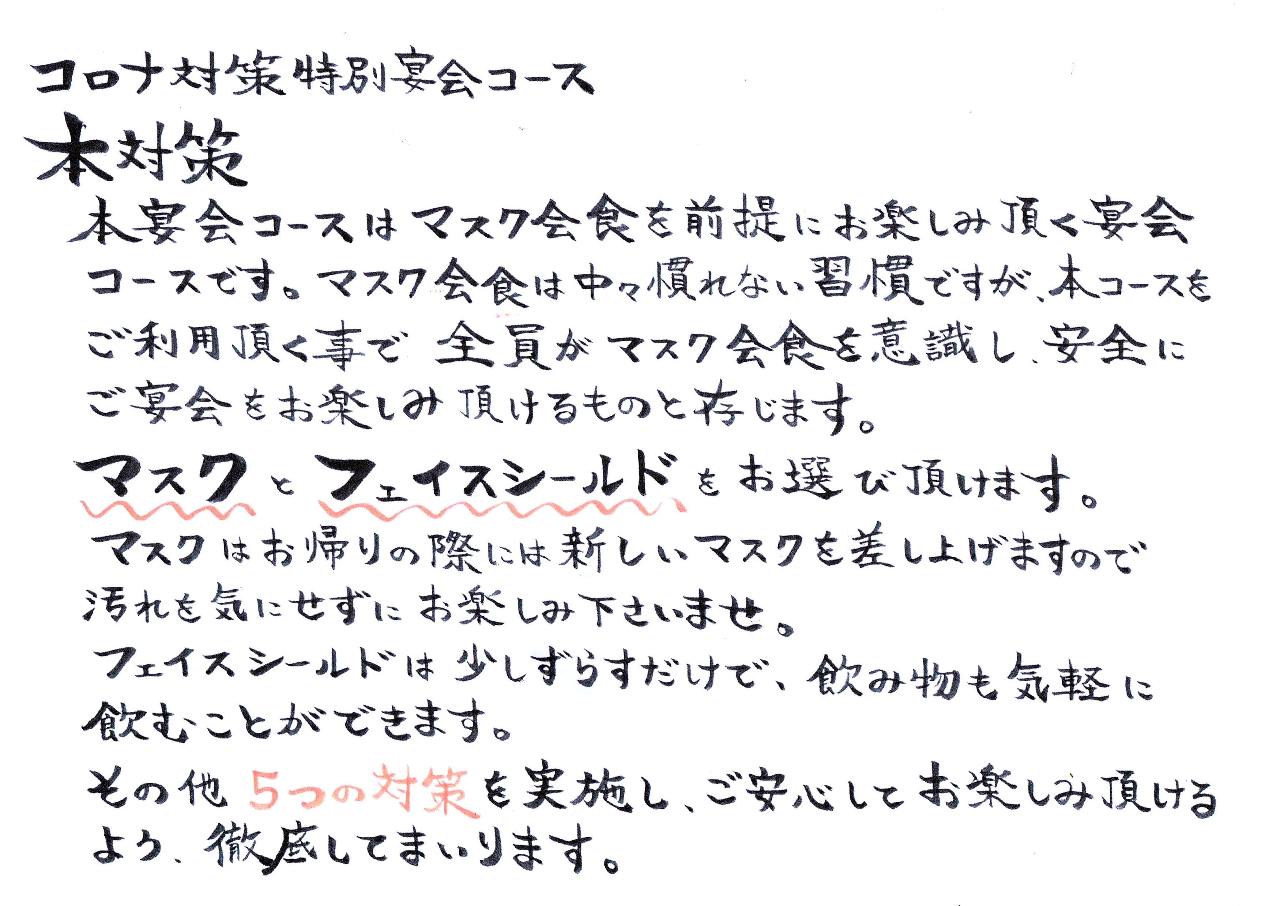 コロナ対策特別宴会コース
本対策
本宴会コースはマスク会食を前提にお楽しみ頂く宴会
コースです。マスク会食は中々慣れない習慣ですが、本コースを
ご利用頂く事で全員がマスク会食を意識し、安全に
ご宴会をお楽しみ頂けるものと存じます。
マスクとフェイスシールドをお選び頂けます。
マスクはお帰りの際には新しいマスクを差し上げますので
汚れを気にせずにお楽しみ下さいませ。
フェイスシールドは少しずらすだけで、飲み物も気軽に
飲むことができます。
その他5つの対策を実施し、ご安心してお楽しみ頂ける
よう、徹底してまいります。